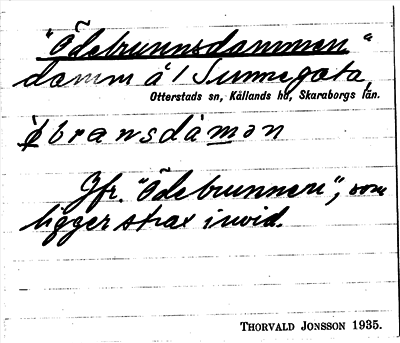 "Ödebrunnsdammen"
damm å 1 Sunnegata,
Otterstads sn, Kållands hd, Skaraborgs län.
Jfr. "Ödebrunnen", som
ligger strax invid.
THORVALD JONSSON 1935.